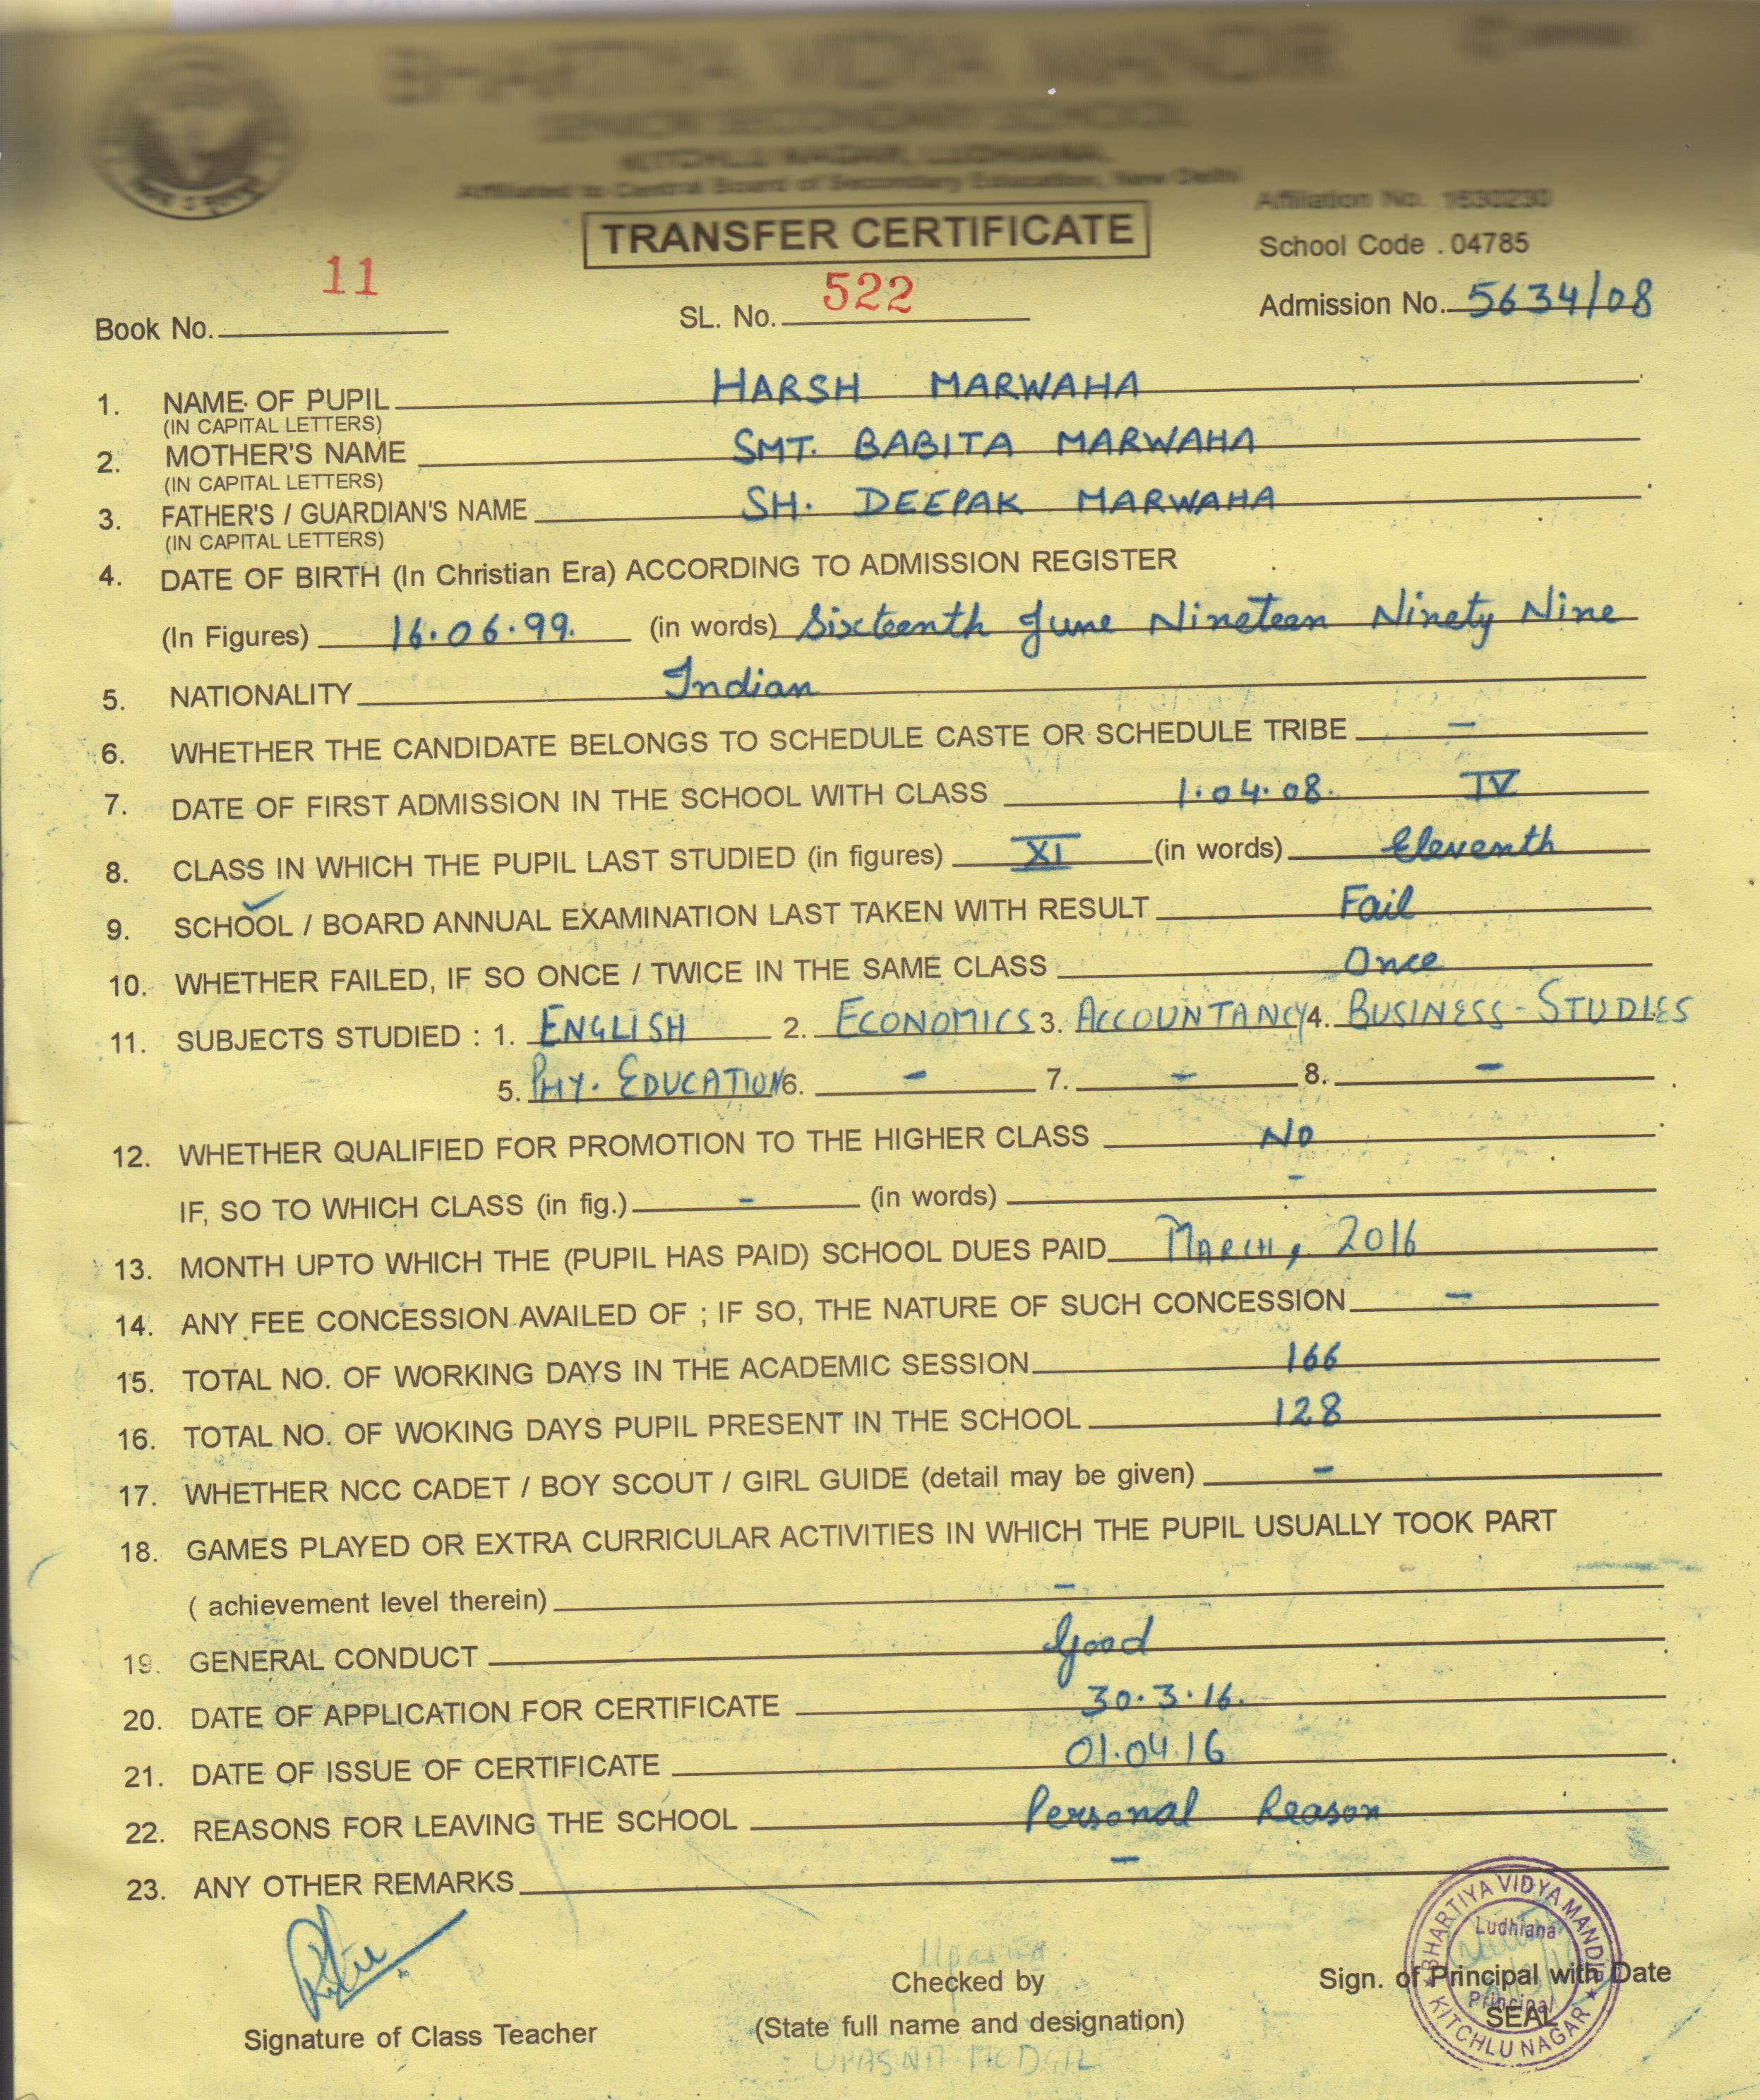 BHARTIYA VIDYA MANDIR
SENIOR SECONDARY SCHOOL
KITCHLU NAGAR, LUDHIANA.
Affiliated to Central Board of Secondary Education, New Delhi
Affiliation No. 1630230
TRANSFER CERTIFICATE
School Code . 04785
Book No. 11 SL. No. 522 Admission No. 5634/08
1. NAME OF PUPIL HARSH MARWAHA
(IN CAPITAL LETTERS)
2. MOTHER'S NAME SMT. BABITA MARWAHA
(IN CAPITAL LETTERS)
3. FATHER'S / GUARDIAN'S NAME SH. DEEPAK MARWAHA
(IN CAPITAL LETTERS)
4. DATE OF BIRTH (In Christian Era) ACCORDING TO ADMISSION REGISTER
(In Figures) 16.06.99. (in words) Sixteenth June Nineteen Ninety Nine
5. NATIONALITY Indian
6. WHETHER THE CANDIDATE BELONGS TO SCHEDULE CASTE OR SCHEDULE TRIBE –
7. DATE OF FIRST ADMISSION IN THE SCHOOL WITH CLASS 1.04.08. IV
8. CLASS IN WHICH THE PUPIL LAST STUDIED (in figures) XI (in words) Eleventh
9. SCHOOL / BOARD ANNUAL EXAMINATION LAST TAKEN WITH RESULT Fail
10. WHETHER FAILED, IF SO ONCE / TWICE IN THE SAME CLASS Once
11. SUBJECTS STUDIED : 1. ENGLISH 2. ECONOMICS 3. ACCOUNTANCY 4. BUSINESS-STUDIES
5. PHY. EDUCATION 6. – 7. – 8. –
12. WHETHER QUALIFIED FOR PROMOTION TO THE HIGHER CLASS NO
IF, SO TO WHICH CLASS (in fig.) – (in words) –
13. MONTH UPTO WHICH THE (PUPIL HAS PAID) SCHOOL DUES PAID MARCH, 2016
14. ANY FEE CONCESSION AVAILED OF ; IF SO, THE NATURE OF SUCH CONCESSION –
15. TOTAL NO. OF WORKING DAYS IN THE ACADEMIC SESSION 166
16. TOTAL NO. OF WOKING DAYS PUPIL PRESENT IN THE SCHOOL 128
17. WHETHER NCC CADET / BOY SCOUT / GIRL GUIDE (detail may be given) –
18. GAMES PLAYED OR EXTRA CURRICULAR ACTIVITIES IN WHICH THE PUPIL USUALLY TOOK PART
( achievement level therein) –
19. GENERAL CONDUCT Good
20. DATE OF APPLICATION FOR CERTIFICATE 30.3.16.
21. DATE OF ISSUE OF CERTIFICATE 01.04.16
22. REASONS FOR LEAVING THE SCHOOL Personal Reason
23. ANY OTHER REMARKS –
BHARTIYA VIDYA MANDIR
Ludhiana
Principal
KITCHLU NAGAR
Upasna
Checked by
Sign. of Principal with Date
SEAL
Signature of Class Teacher
(State full name and designation)
UPASNA MODGIL